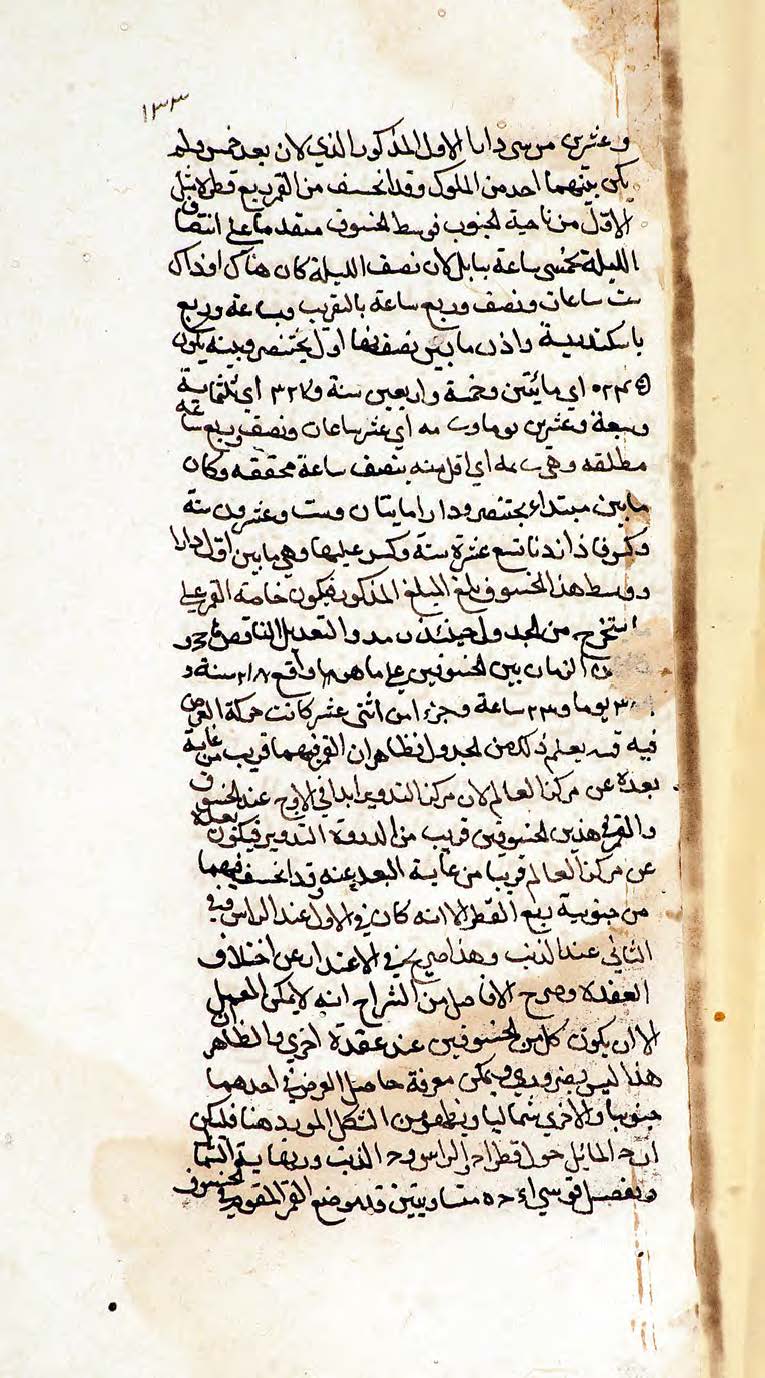 ١٣٣
وعشرين من سنى دارا الاول المذكور الذي لان بعد خمس ولم
يكن بينهما احد من الملوك وقد انخسف من القمر ربع قطره مثل
الاول من ناحية الجنوب في وسط الخسوف متقدما على انتصاف
الليلة بخمسي ساعة ببابل لان نصف الليلة كان هناك اذ ذاك
ست ساعات ونصف وربع ساعة بالتقريب وبساعة وربع
باسكندرية واذن ما بين نصف نها اول بختنصر وبينه يكون
اي مائتين وخمسة واربعين سنة و٣٢٧ اي ثلثماية
وسبعة وعشرين يوما و اي عشر ساعات ونصف وربع ساعة
مطلقه وهي اي اقل منه بنصف ساعة محققه وكان
ما بين مبتداء بختنصر ودارا مايتان وست وعشرون سنة
وكسر فاذا زدنا تسع عشرة سنة وكسر عليها وهي ما بين اول دارا
ووسط هذا الخسوف بلغ المبلغ المذكور فيكون خاصة القمر على
استخرج من الجدول حينئذ والتعديل الناقص
الزمان بين الخسوفين على ما هو الواقع ٢١٨ سنة و
يوما و٢٣ ساعة وجزء من اثنى عشر كانت حركة العرض
فيه يعلم ذلك من الجدول فظاهر ان القمر فيهما قريب من غاية
بعده عن مركز العالم لان مركز التدوير ابدا في الاوج عند الخسوف
والقمر في هذين الخسوفين قريب من الذروة التدوير فيكون بعده
عن مركز العالم قريبا من غاية البعد عنه وقد انخسف فيهما
من جنوبية ربع القطر الا انه كان في الاول عند الراس وفي
الثاني عند الذنب وهذا صريح في الاعتذار عن اختلاف
العقدة وصرح الافاضل من الشراح انه لا يمكن العمل
الا ان يكون كل من الخسوفين عند عقدة اخرى والظاهر ان
هذا ليس بضروري ويمكن معرفة حاصل العرض في احدهما
جنوبيا والاخرى شماليا ويظهر من الشكل المورد هنا فليكن
المائل حول قطر الراس و الذنب و نهاية الشمال
ونفصل قوسي متساويتين موضع القمر المقوم في الخسوف